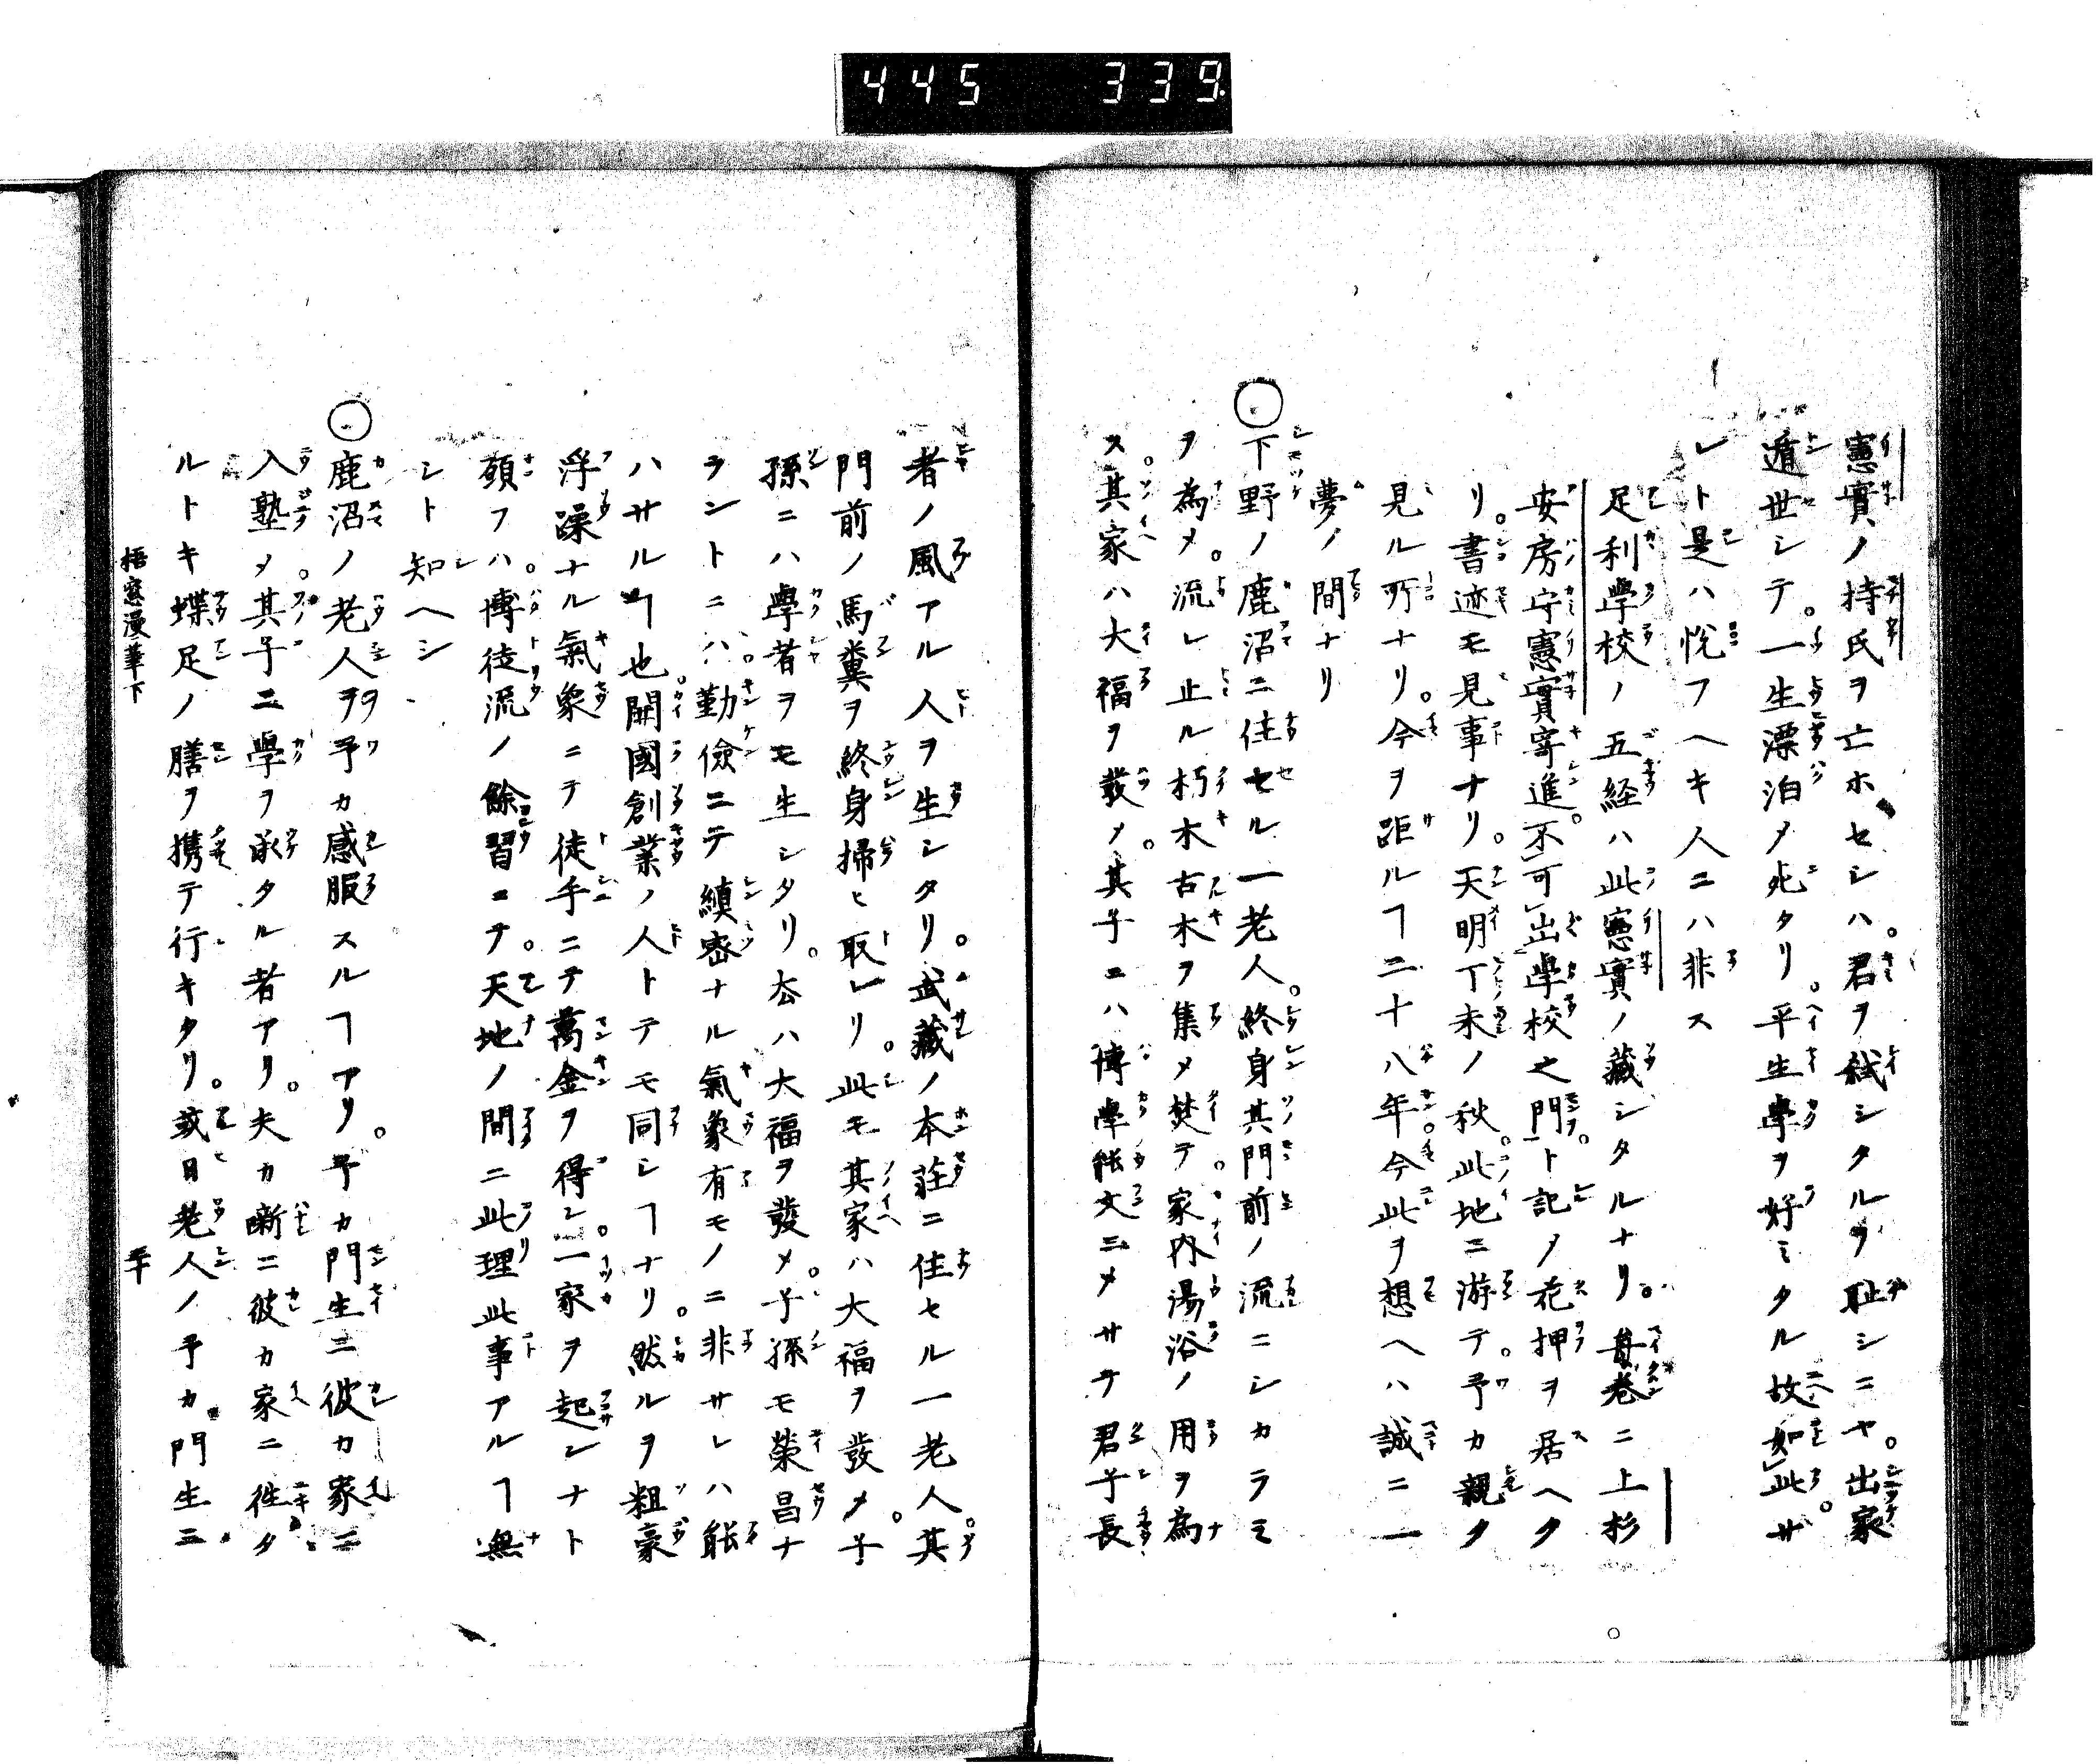 445 339
憲實ノ持氏ヲ亡ホセシハ。君ヲ弑シタルヲ耻シニヤ。出家
遁世シテ。一生漂泊メ死タリ。平生學ヲ好ミタル故如此。サ
レト是ハ悦フヘキ人ニハ非ス
足利學校ノ五経ハ此憲實ノ藏シタルナリ。毎巻ニ上杉
安房守憲實寄進。不可出學校之門。ト記ノ花押ヲ居ヘタ
リ。書迹モ見事ナリ。天明丁未ノ秋。此地ニ游テ。予カ親タ
見ル所ナリ。今ヲ距ルヿ二十八年。今此ヲ想ヘハ誠ニ一
夢ノ間ナリ
○下野ノ鹿沼ニ住セル一老人。終身其門前ノ流ニシカラミ
ヲ為メ。流レ止ル朽木古木ヲ集メ焚テ。家内湯浴ノ用ヲ為
ス。其家ハ大福ヲ發メ。其子ニハ博學能文ニメサテ君子長
者ノ風アル人ヲ生シタリ。武藏ノ本荘ニ住セル一老人。其
門前ノ馬糞ヲ終身掃ヒ取レリ。此モ其家ハ大福ヲ發メ。子
孫ニハ學者ヲモ生シタリ。太ハ大福ヲ發メ。子孫モ榮昌ナ
ラントニハ。勤儉ニテ縝密ナル氣象有モノニ非サレハ能
ハサルヿ也。開國創業ノ人トテモ同シヿナリ。然ルヲ粗豪
浮躁ナル氣象ニテ徒手ニテ萬金ヲ得レ。一家ヲ起シナト
願フハ。博徒流ノ餘習ニテ。天地ノ間ニ此理此事アルヿ無
シト知ヘシ
○鹿沼ノ老人ヲ予カ感服スルヿアリ。予カ門生ニ彼カ家ニ
入塾メ。其子ニ學ヲ承タル者アリ。夫カ噺ニ彼カ家ニ徃タ
ルトキ蝶足ノ膳ヲ携テ行キタリ。或日老人ノ予カ門生ニ
梧窓漫筆下